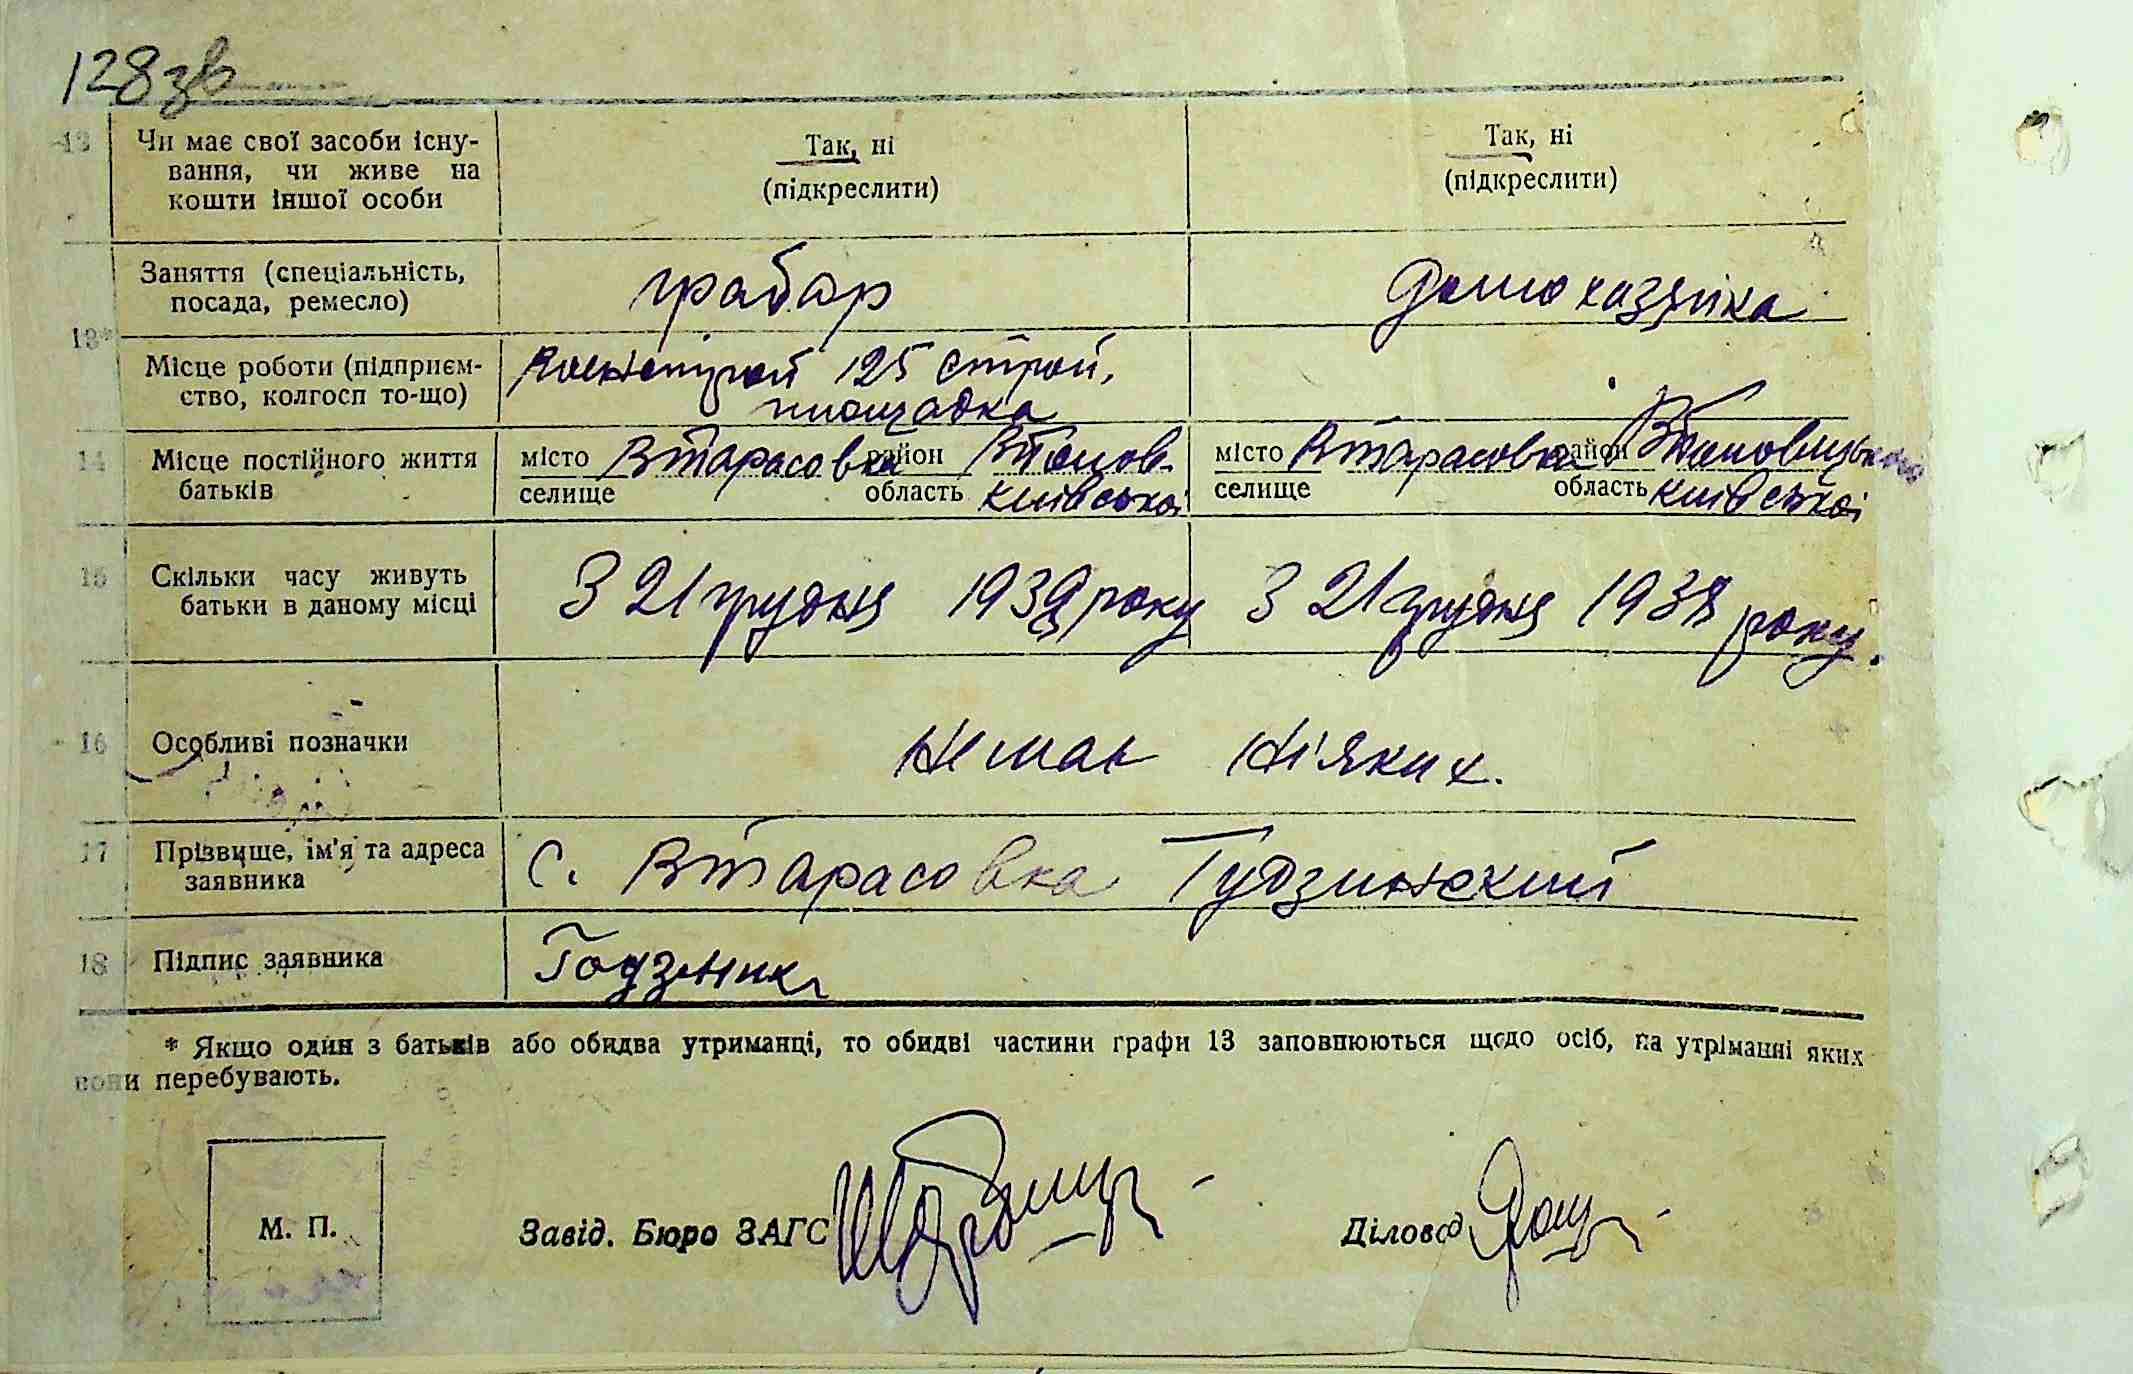 128зв
13 Чи має свої засоби існу-
вання, чи живе на
кошти іншої особи
Так, ні
(підкреслити)
Так, ні
(підкреслити)
Заняття (спеціальність,
посада, ремесло)
грабар
Домохазяйка
13*
Місце роботи (підприєм-
ство, колгосп то-що)
125 строй.
площадка
14 Місце постійного життя
батьків
місто ВТарасовка район
селище область київської
місто ВТарасовка район
селище область київської
15 Скільки часу живуть
батьки в даному місці
З 21 грудня 1939 року
З 21 грудня 1939 року.
16 Особливі позначки
Немає ніяких.
17 Прізвище, ім'я та адреса
заявника
с. ВТарасовка Гудзинский
18 Підпис заявника
* Якщо один з батьків або обидва утриманці, то обидві частини графи 13 заповнюються щодо осіб, на утріманні яких
вони перебувають.
М. П.
Завід. Бюро ЗАГС
Діловод